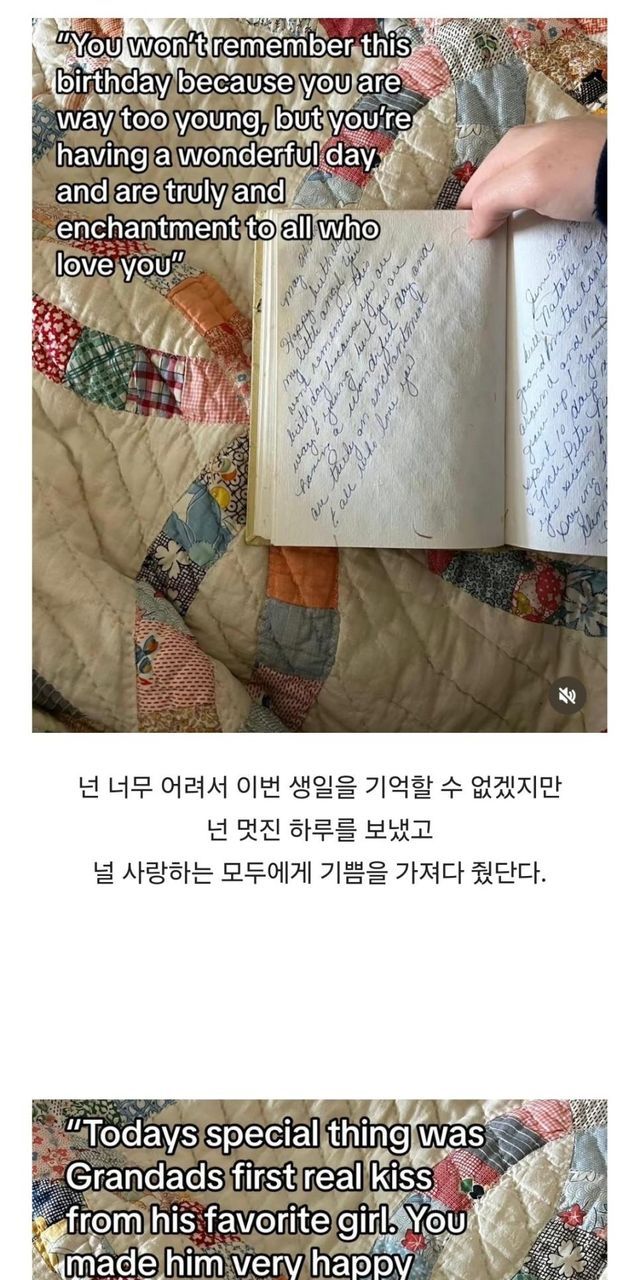 "You won't remember this
birthday because you are
way too young, but you're
having a wonderful day
and are truly and
enchantment to all who
love you"
Happy birthday
my little angel you
wont remember this
birthday because you are
way to young but you are
having a wonderful day and
are truly an enchantment
to all who love you
넌 너무 어려서 이번 생일을 기억할 수 없겠지만
넌 멋진 하루를 보냈고
널 사랑하는 모두에게 기쁨을 가져다 줬단다.
"Todays special thing was
Grandads first real kiss
from his favorite girl. You
made him very happy